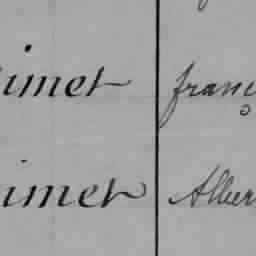 imet franç
imet Alber